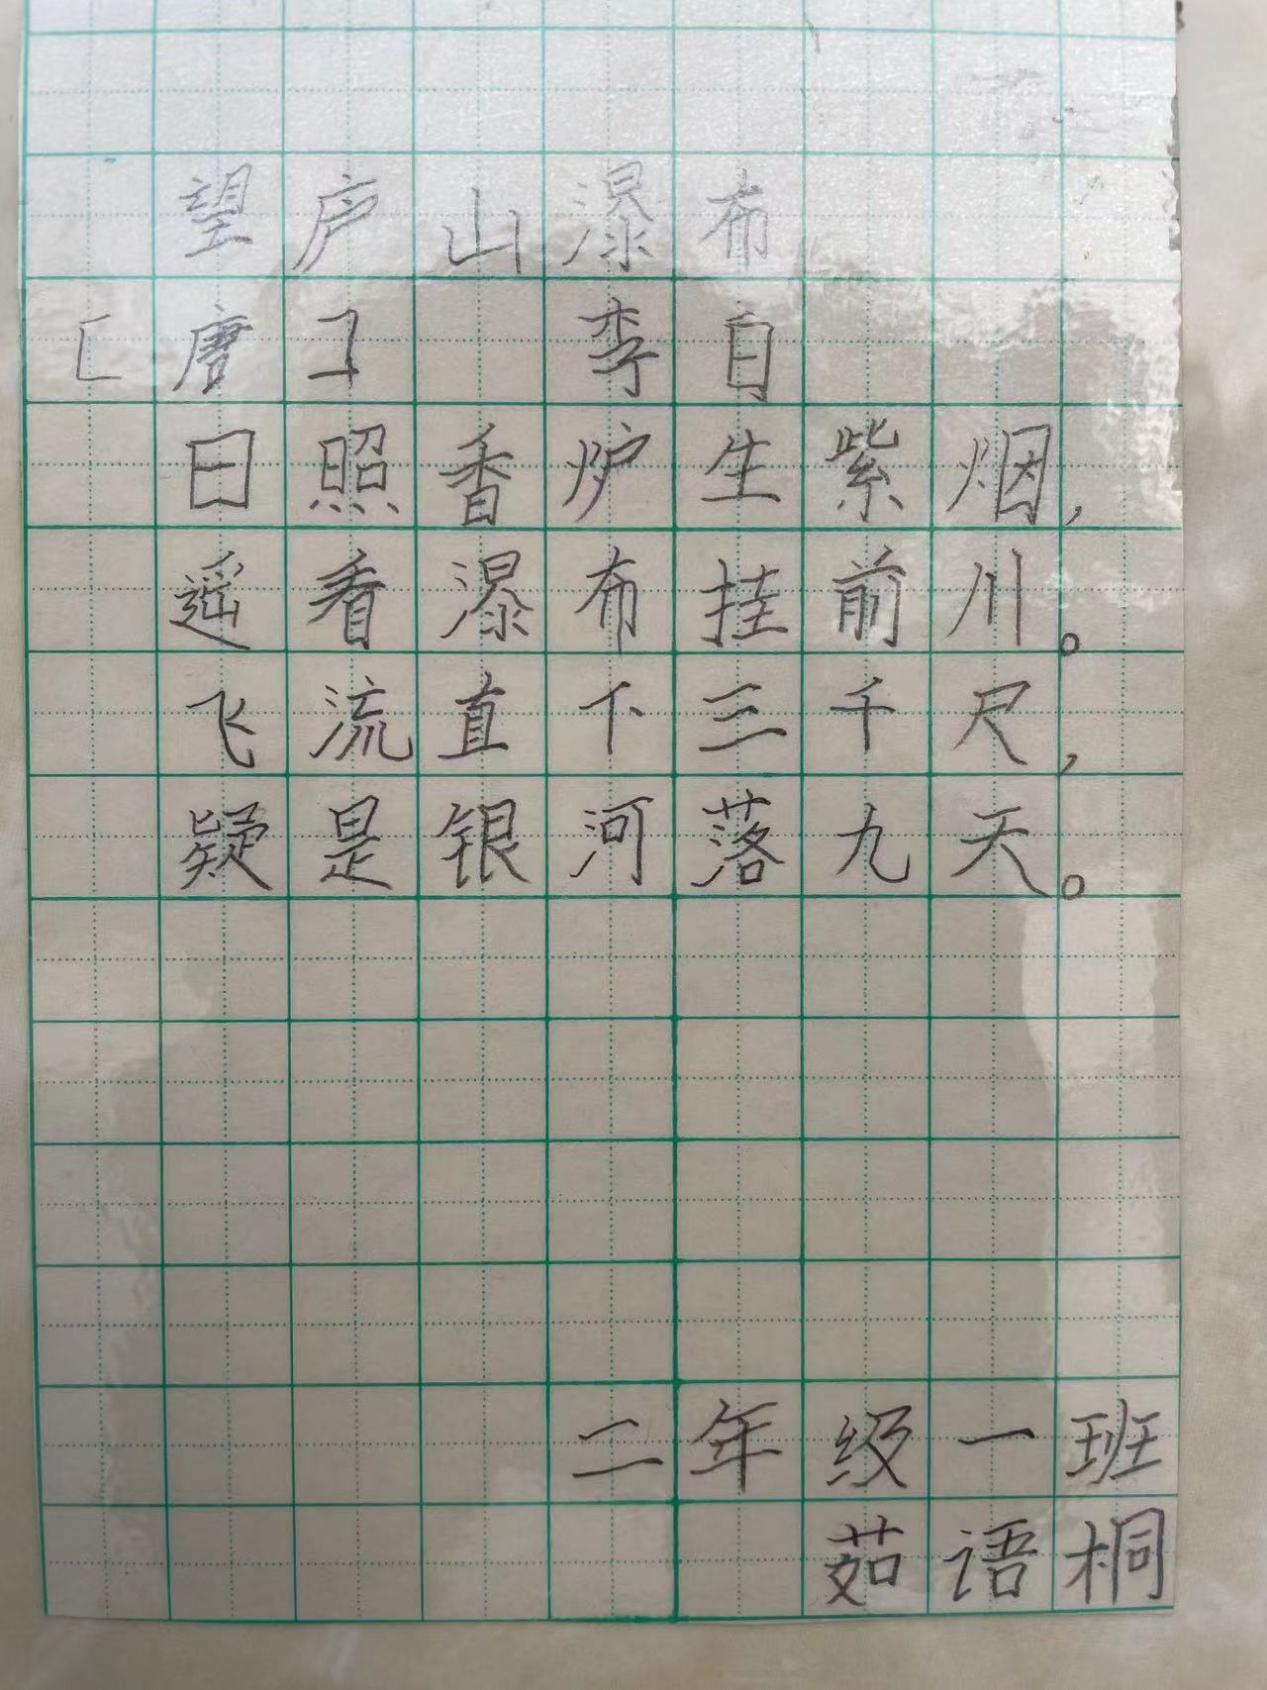 望庐山瀑布
[唐] 李白
日照香炉生紫烟，
遥看瀑布挂前川。
飞流直下三千尺，
疑是银河落九天。
二年级一班
茹语桐